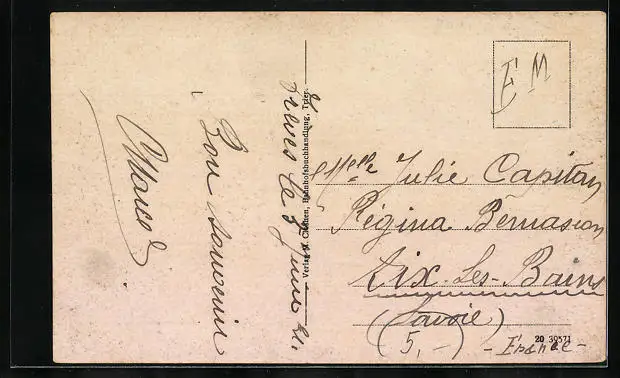 Trèves le 5 Juin 21.
Bon souvenir
Marcel
Verlag A. Cüppen, Bahnhofsbuchhandlung, Trier.
E M
Melle Julie Capitan
Régina Bernascon
Aix-Les-Bains
(Savoie)
(5,-)
- France -
20 39571